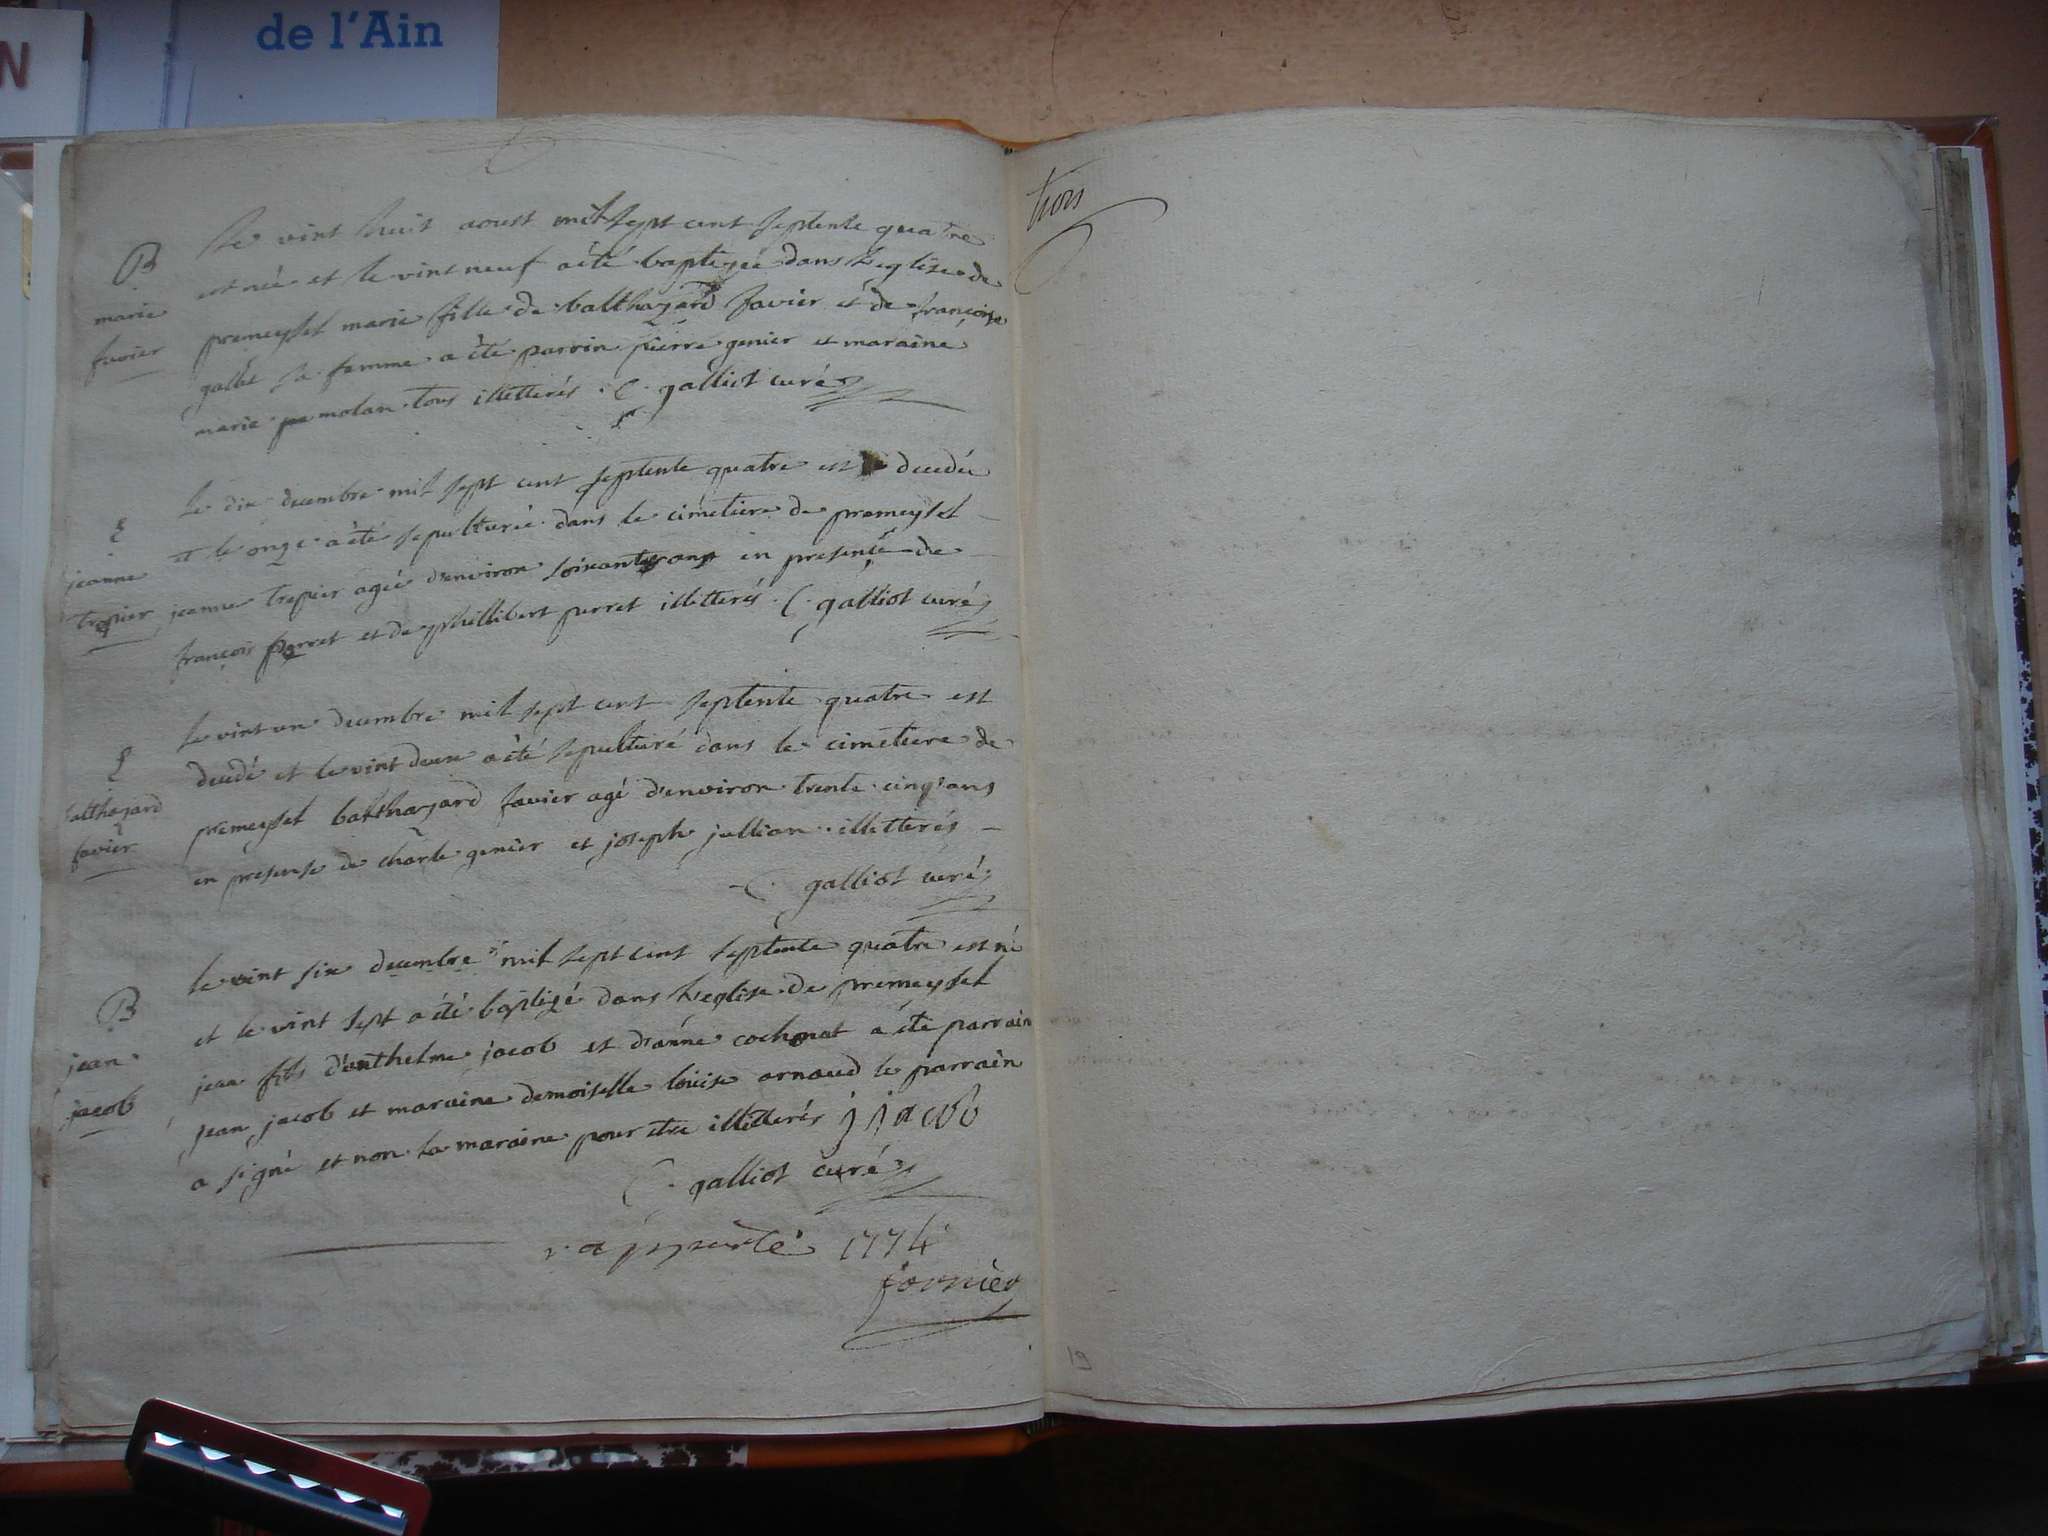 N
de l'Ain
B
marie
favier
Le vint huit aoust mil sept cent septente quatre
est née et le vint neuf a été baptizée dans l'eglise de
premeysel marie fille de balthazard favier et de françoise
gallet sa femme a été parrin pierre genier et maraine
marie pe molan tous illetterés . C. galliot curé
S
jeanne
trepier
Le dix decembre mil sept cent septente quatre est decedée
et le onze a été sepulturée dans le cimetiere de premeysel
jeanne trepier agée d'environ soixante ans en presence de
françois perret et de phillibert perret illetterés . C. galliot curé
S
balthazard
favier
Le vint un decembre mil sept cent septente quatre est
decedé et le vint deux a été sepulturé dans le cimetiere de
premeysel balthazard favier agé d'environ trente cinq ans
en presense de charle genier et joseph jullian illetterés
C. galliot curé
B
jean
jacob
le vint six decembre mil sept cent septente quatre est né
et le vint sept a été baptizé dans l'eglise de premeysel
jean fils d'anthelme jacob et d'anne cochonat a été parrain
jean jacob et maraine demoiselle louise arnaud le parrain
a signé et non la maraine pour etre illetterés j jacob
C. galliot curé
rapporté 1774
fornier
trois
19